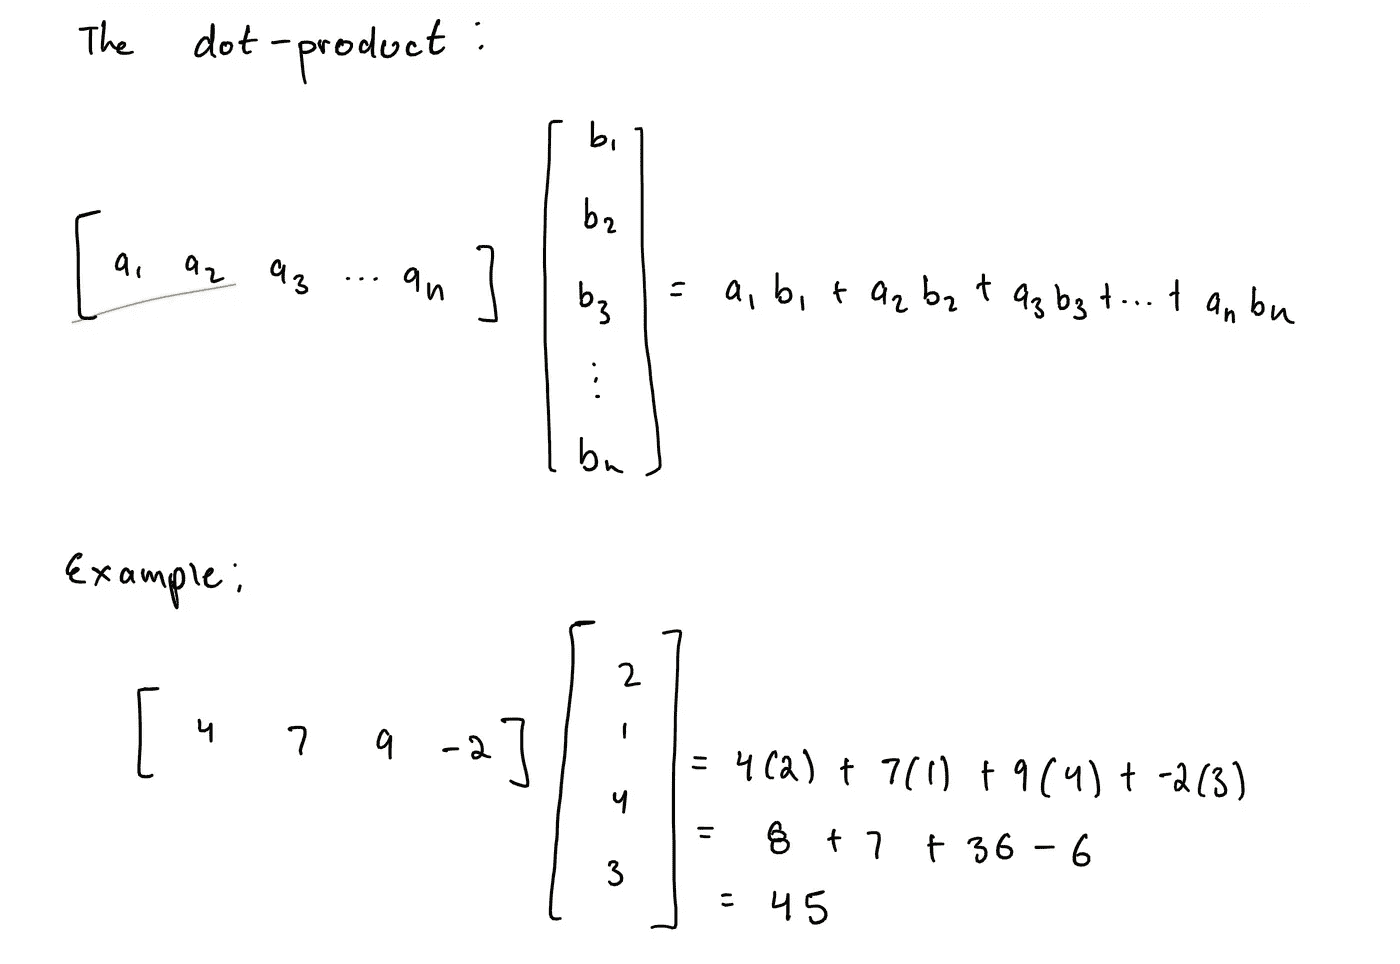 The dot-product:
[ a₁ a₂ a₃ ... aₙ ] [ b₁ b₂ b₃ ⋮ bₙ ] = a₁ b₁ + a₂ b₂ + a₃ b₃ + ... + aₙ bₙ
Example:
[ 4 7 9 -2 ] [ 2 1 4 3 ] = 4(2) + 7(1) + 9(4) + -2(3)
= 8 + 7 + 36 - 6
= 45